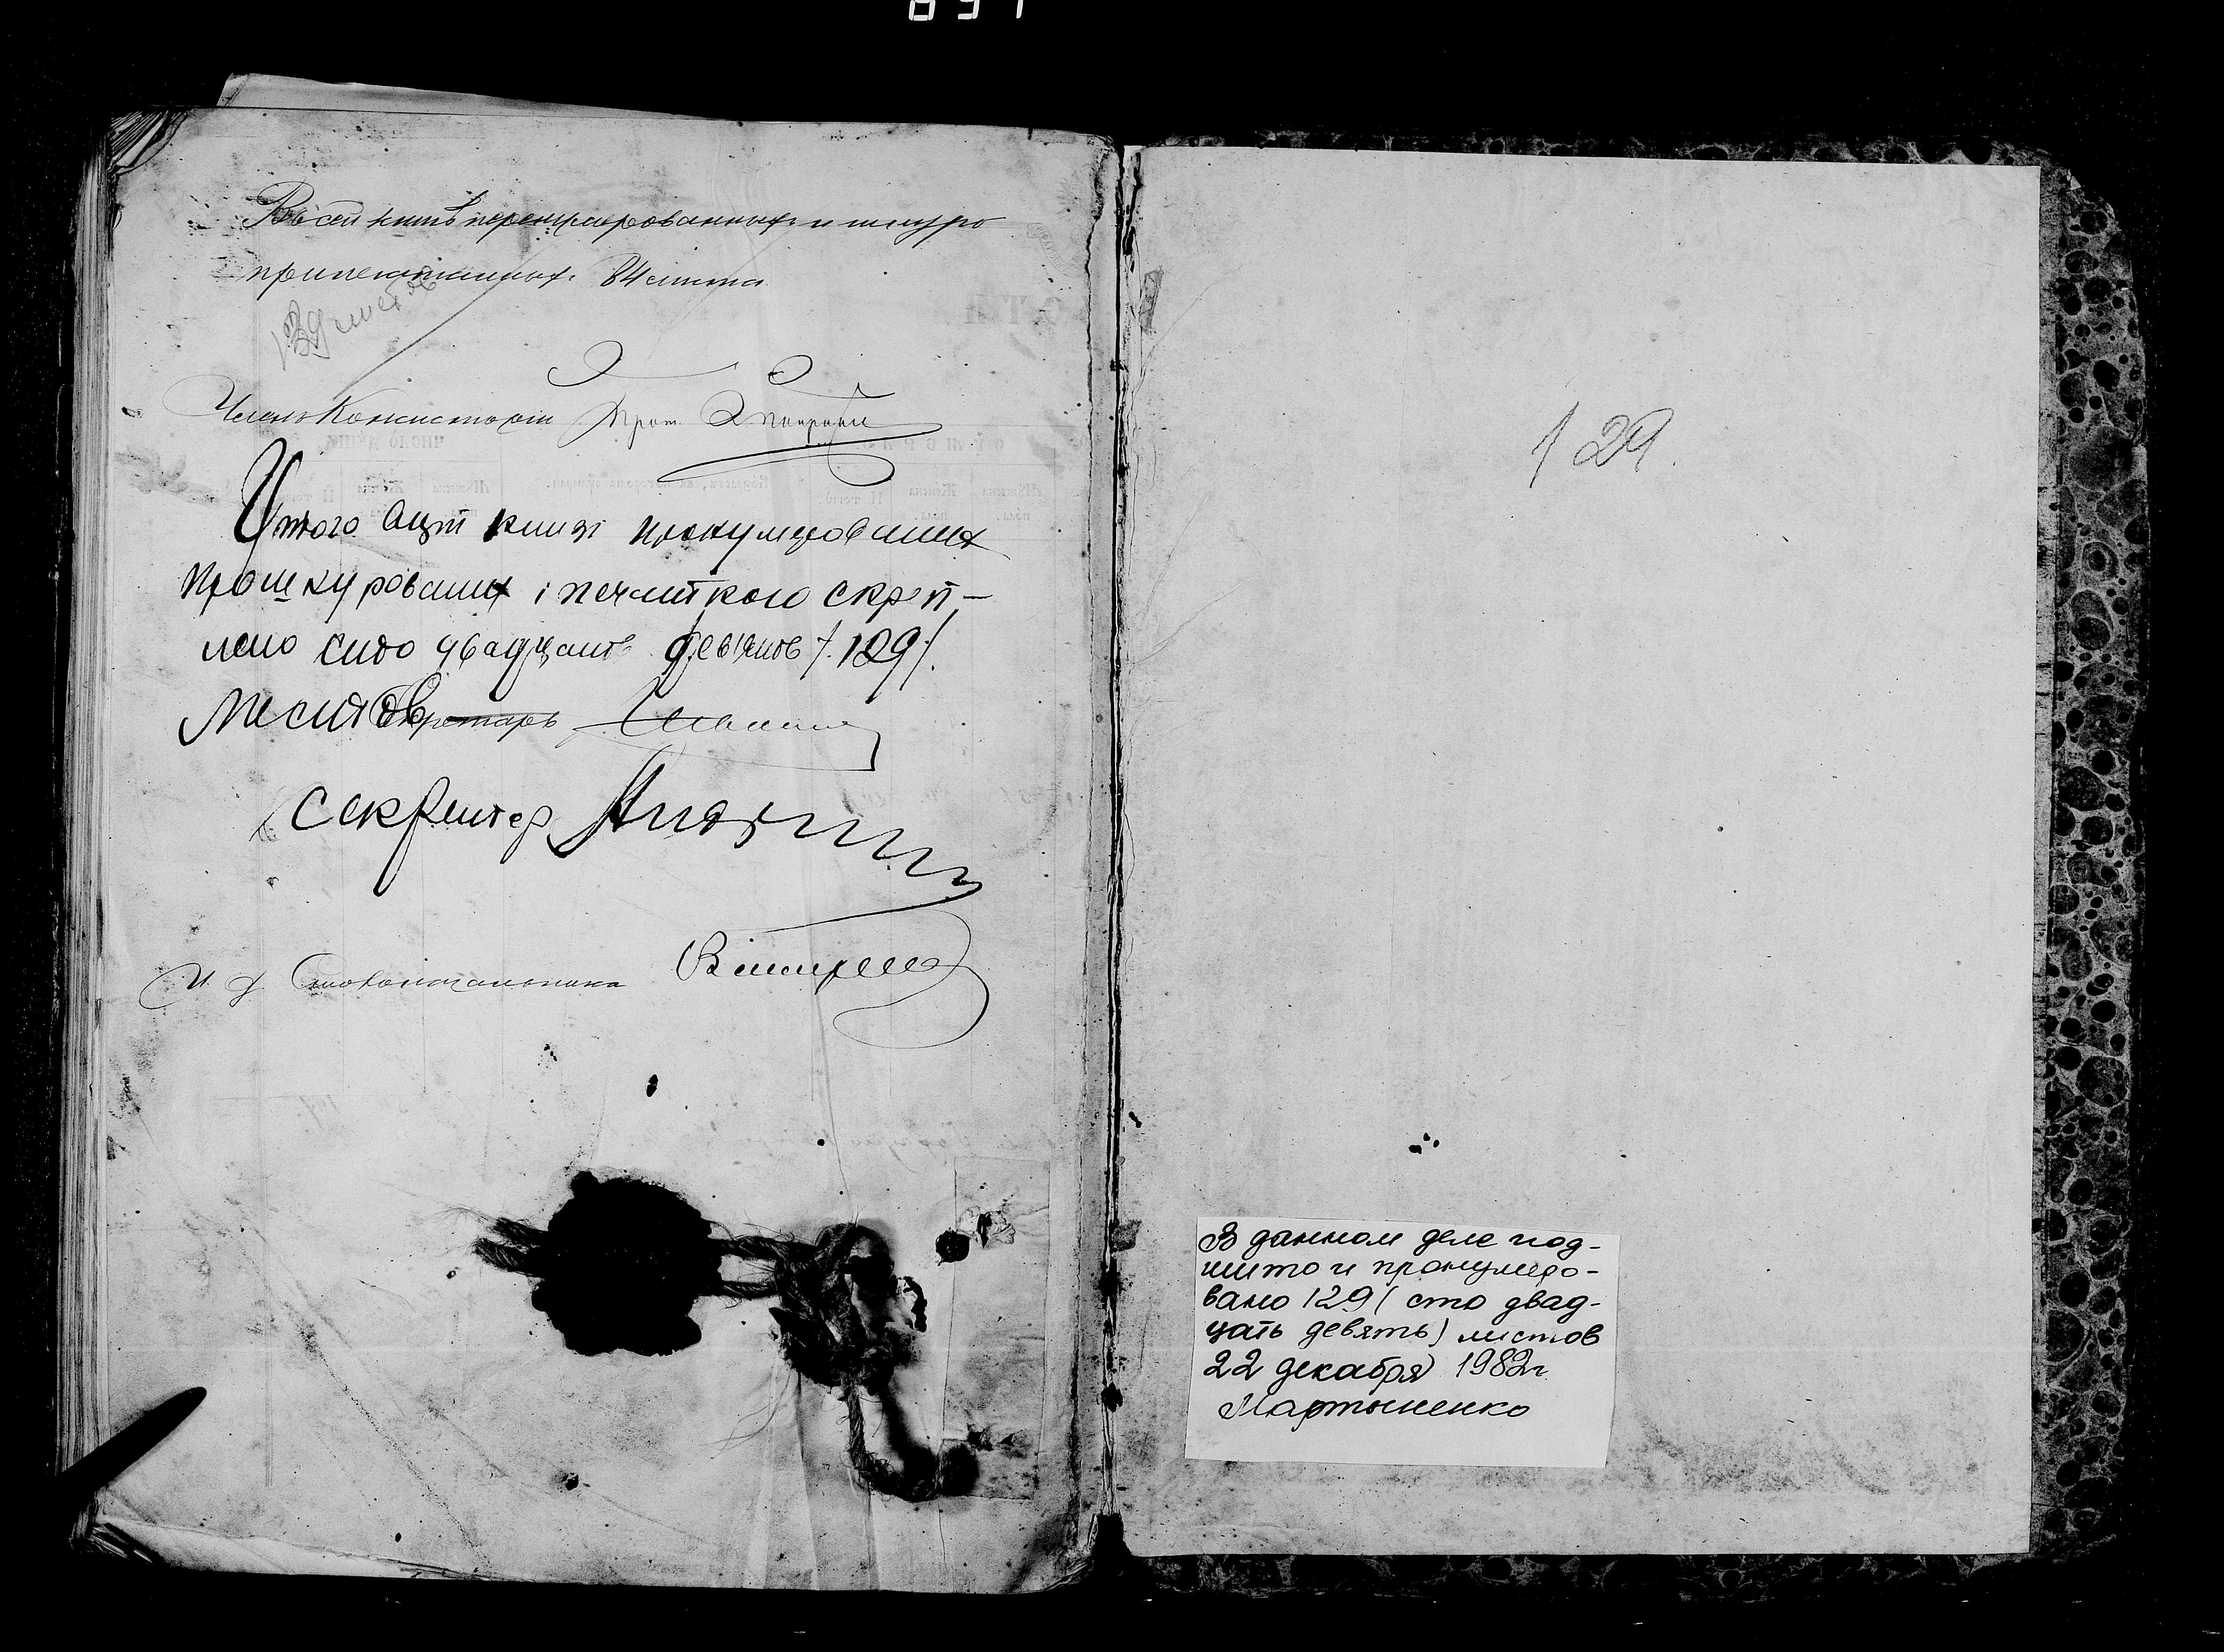 Въ сей книгѣ перенумерованныхъ и шнуро
припечатанныхъ 84 листа
129 листов
Членъ Консисторіи Прот.
У этого акт книзі пронумерованих
прошнурованих і печаткою скреп-
лено сто двадцать девять /.129/.
листов Секретарь
Секретар
И. д. Столоначальника
129.
В данном деле под-
шито и пронумеро-
вано 129 ( сто двад-
цать девять) листов
22 декабря 1982г
Мартыненко